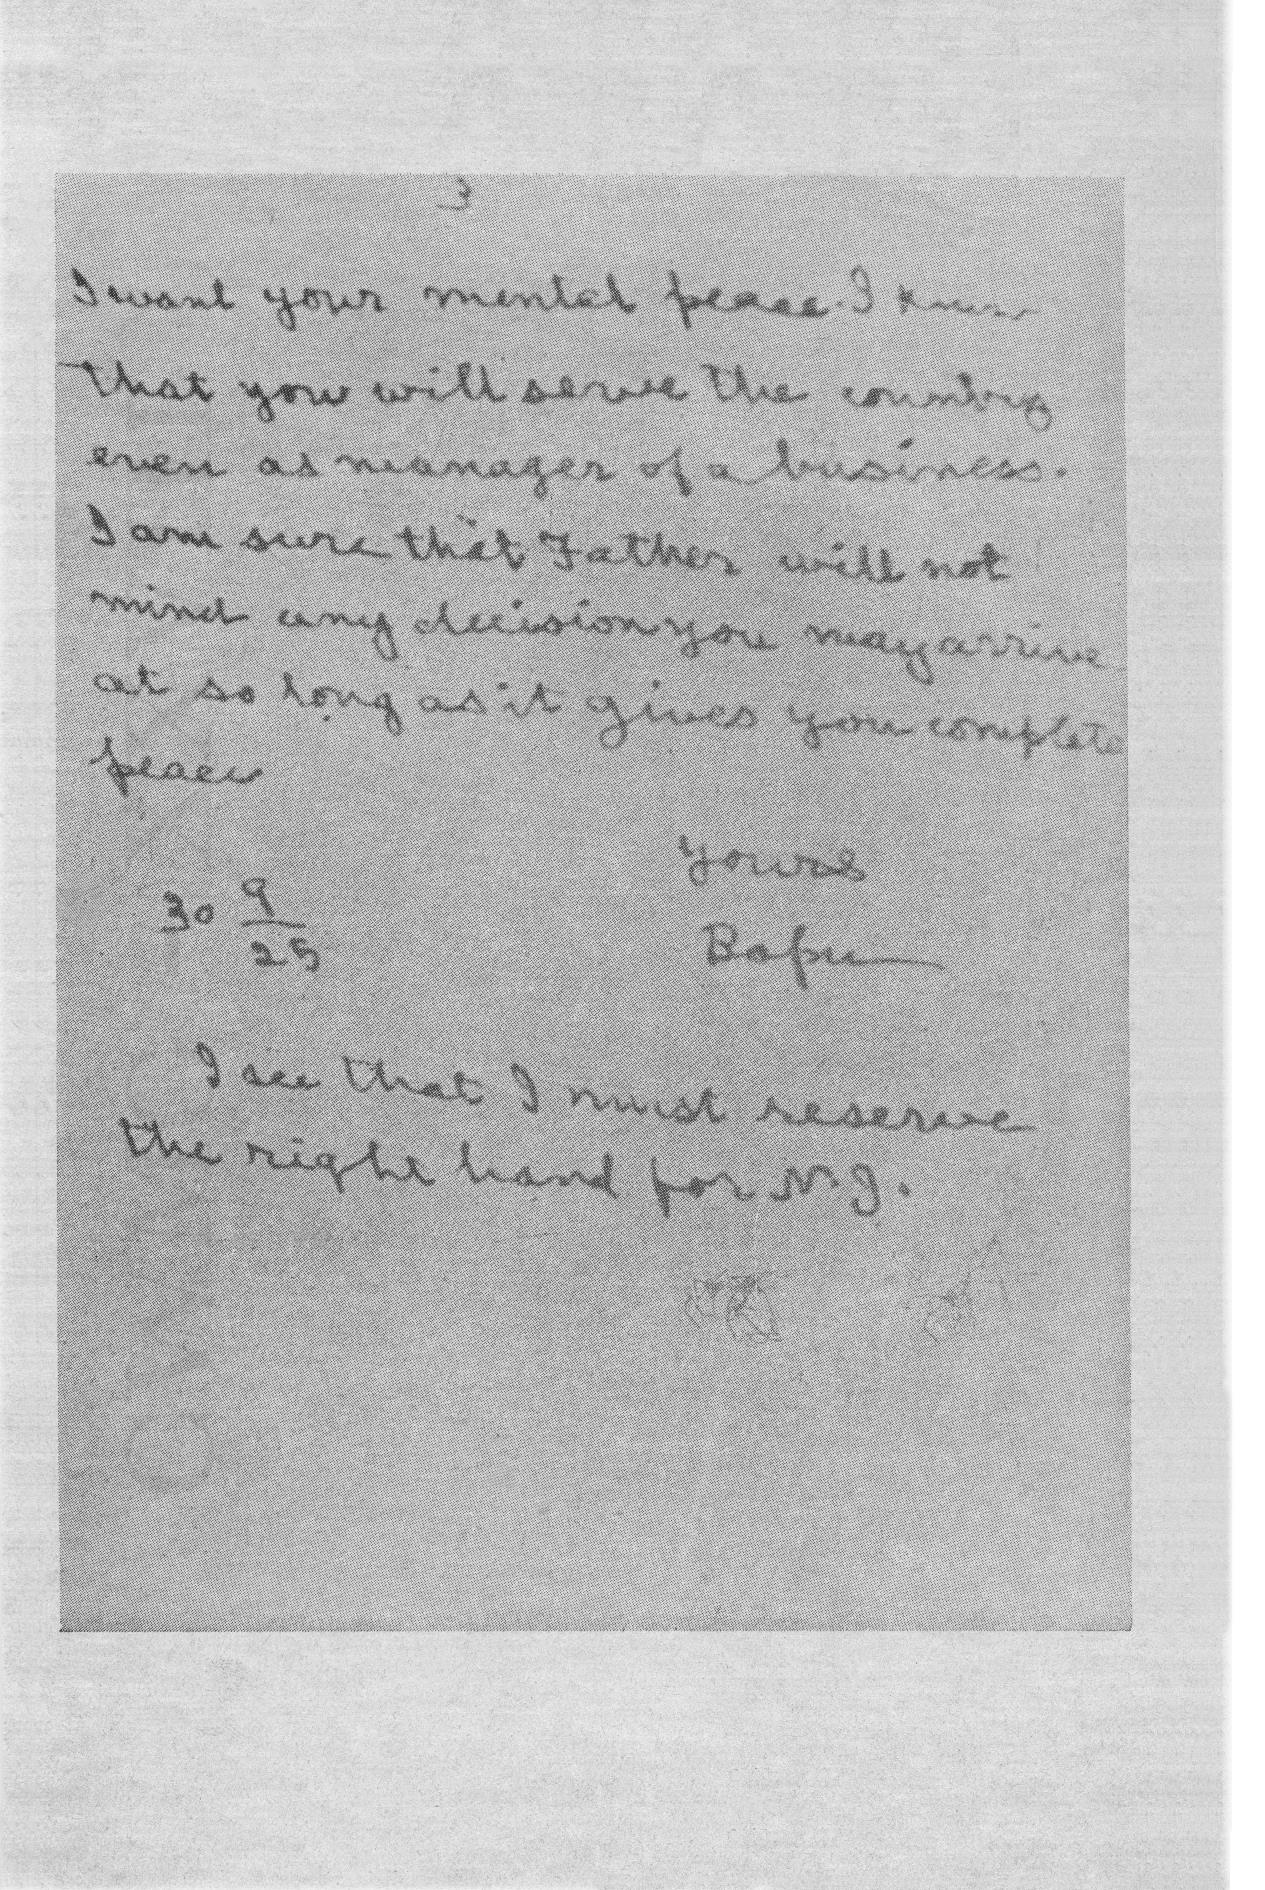 3
I want your mental peace. I know
that you will serve the country
even as manager of a business.
I am sure that Father will not
mind any decision you may arrive
at so long as it gives you complete
peace
yours
30 9/25
Bapu
I see that I must reserve
the right hand for N. J.